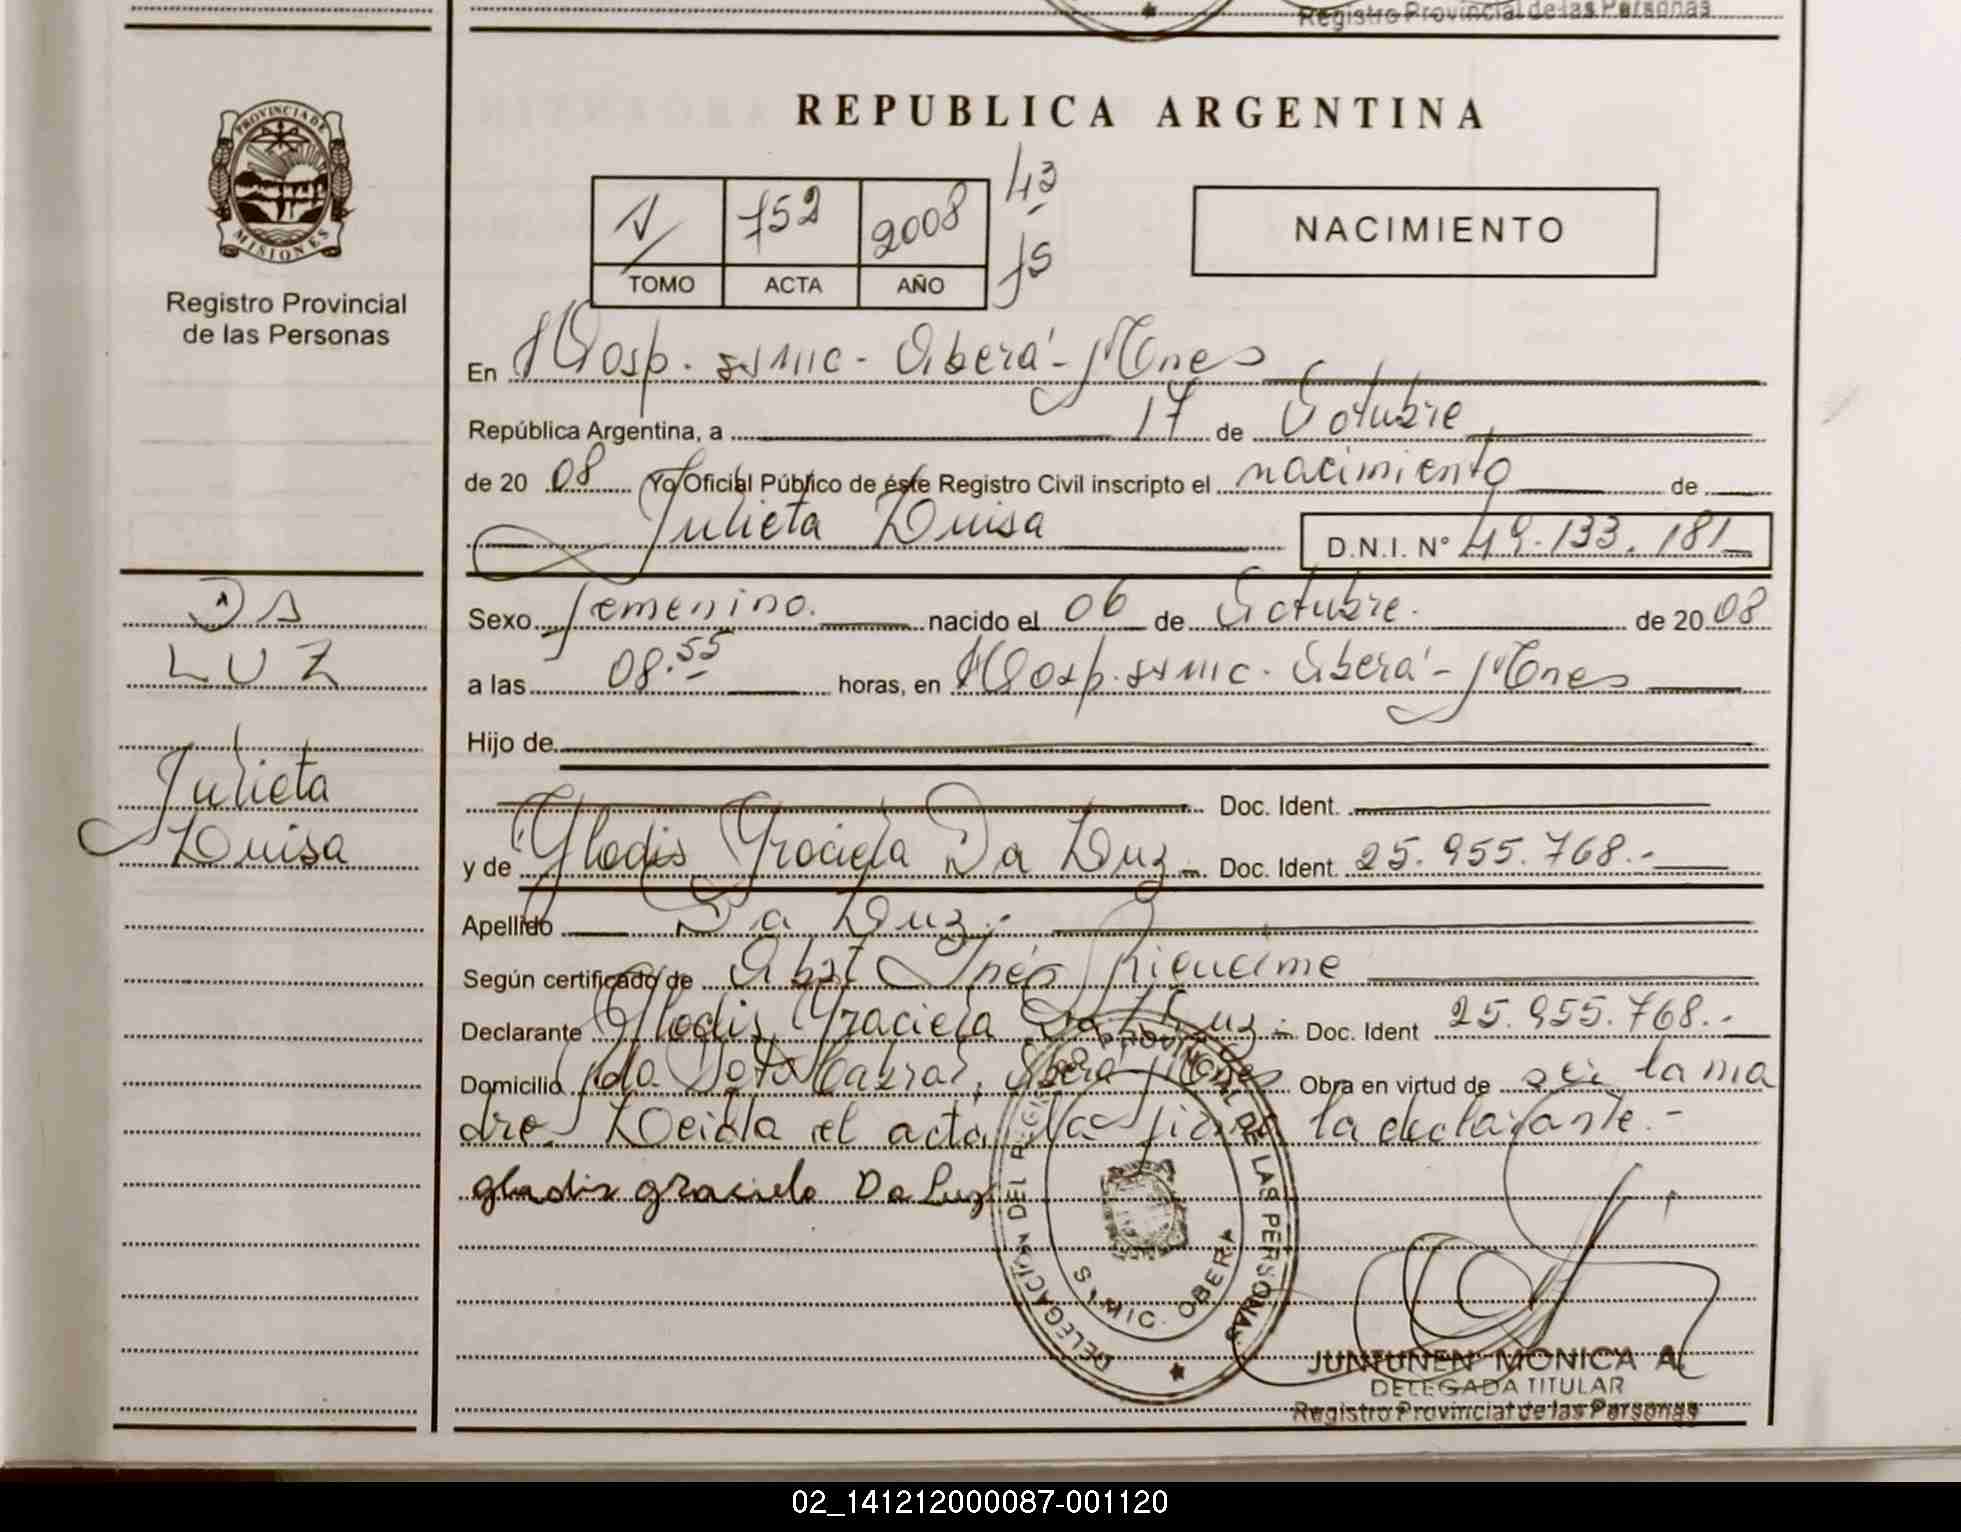 Registro Provincial de las Personas
PROVINCIA DE
MISIONES
Registro Provincial
de las Personas
DA
LUZ
Julieta
Luisa
REPUBLICA ARGENTINA
V 752 2008
TOMO ACTA AÑO
43
75
NACIMIENTO
En Hosp. SAMIC - Oberá - Mnes
República Argentina, a 17 de Octubre
de 2008 Yo Oficial Público de éste Registro Civil inscripto el nacimiento de
Julieta Luisa D.N.I. N° 49.133.181
Sexo femenino. nacido el 06 de Octubre. de 2008
a las 08.55 horas, en Hosp. SAMIC - Oberá - Mnes
Hijo de
Doc. Ident.
y de Gladis Graciela Da Luz Doc. Ident. 25.955.768.-
Apellido Da Luz.-
Según certificado de Obst Inés Riquelme
Declarante Gladis Graciela Da Luz.- Doc. Ident 25.955.768.-
Domicilio Cabral, Oberá Mnes Obra en virtud de ser la ma
dre. Leída el acta la firma la declarante.-
gladis graciela Da Luz
DELEGACIÓN DEL REGISTRO PROVINCIAL DE LAS PERSONAS
SAMIC. OBERA
JUNTUNEN MONICA A.
DELEGADA TITULAR
Registro Provincial de las Personas
02_141212000087-001120